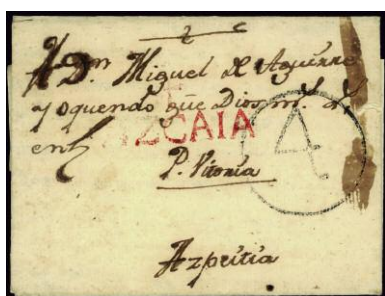 A Dⁿ Miguel de Aguirre
y oquendo que Dios m. a.
en
ZCAIA
4
P. Vitoria
Azpeitia